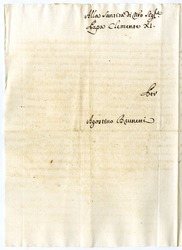 Alla Santità di Nro Sigre
Papa Clemente XI.
Per
Agostino